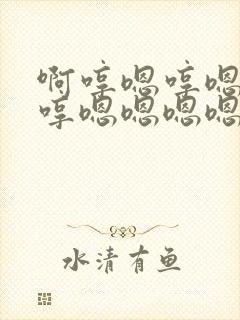 啊哼嗯哼嗯
哼嗯嗯嗯嗯
水清有鱼